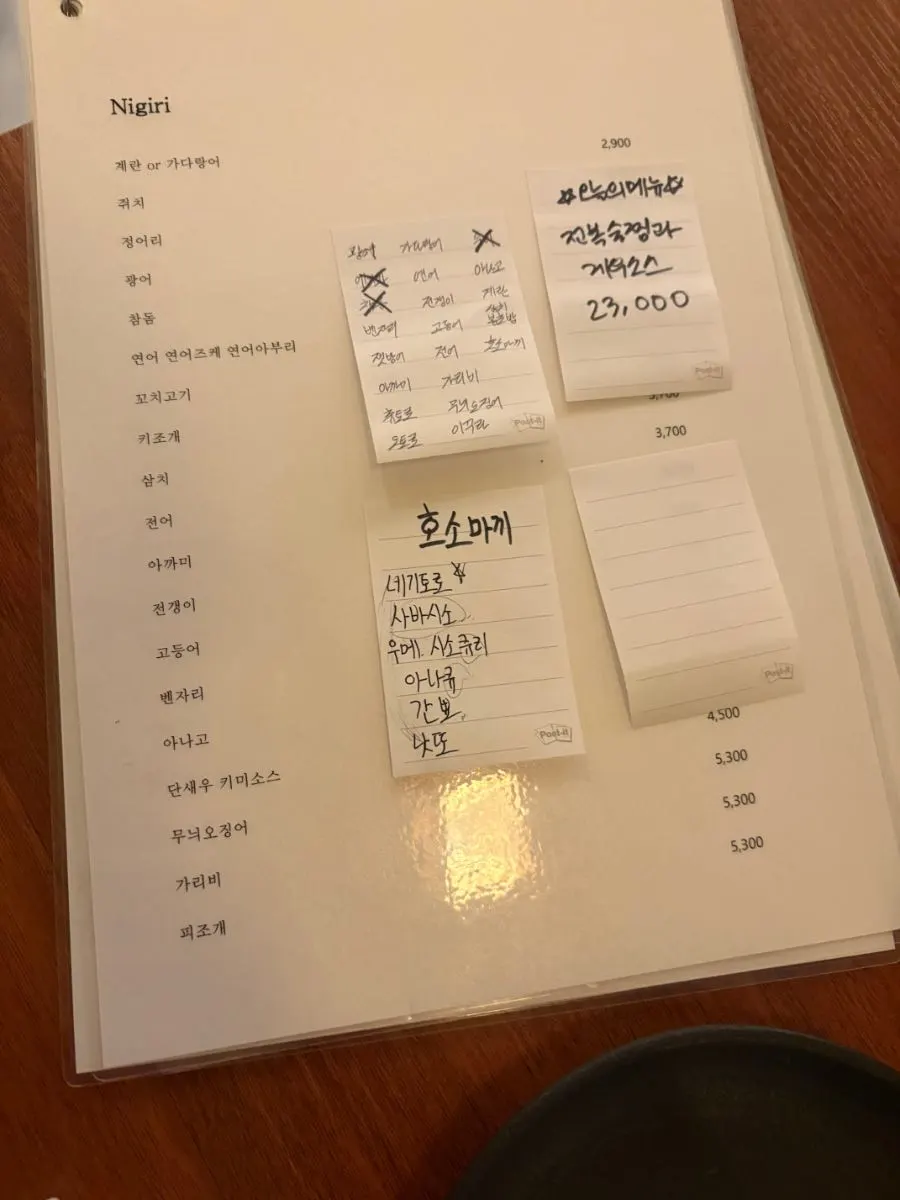 Nigiri
계란 or 가다랑어
2,900
쥐치
정어리
광어
참돔
연어 연어즈케 연어아부리
꼬치고기
키조개
3,700
삼치
전어
아까미
전갱이
고등어
벤자리
아나고
4,500
단새우 키미소스
5,300
무늬오징어
5,300
가리비
5,300
피조개
광어 가다랑어
연어 아나고
전갱이 계란
벤자리 고등어
전어 호소마끼
아까미 가리비
추도로 무늬오징어
오도로 이꾸라
Post-it
☆오늘의메뉴☆
전복술찜과
게우소스
23,000
Post-it
호소마끼
네기토로☆
사바시소
우메.시소큐리
아나큐
간뾰
낫또
Post-it
Post-it